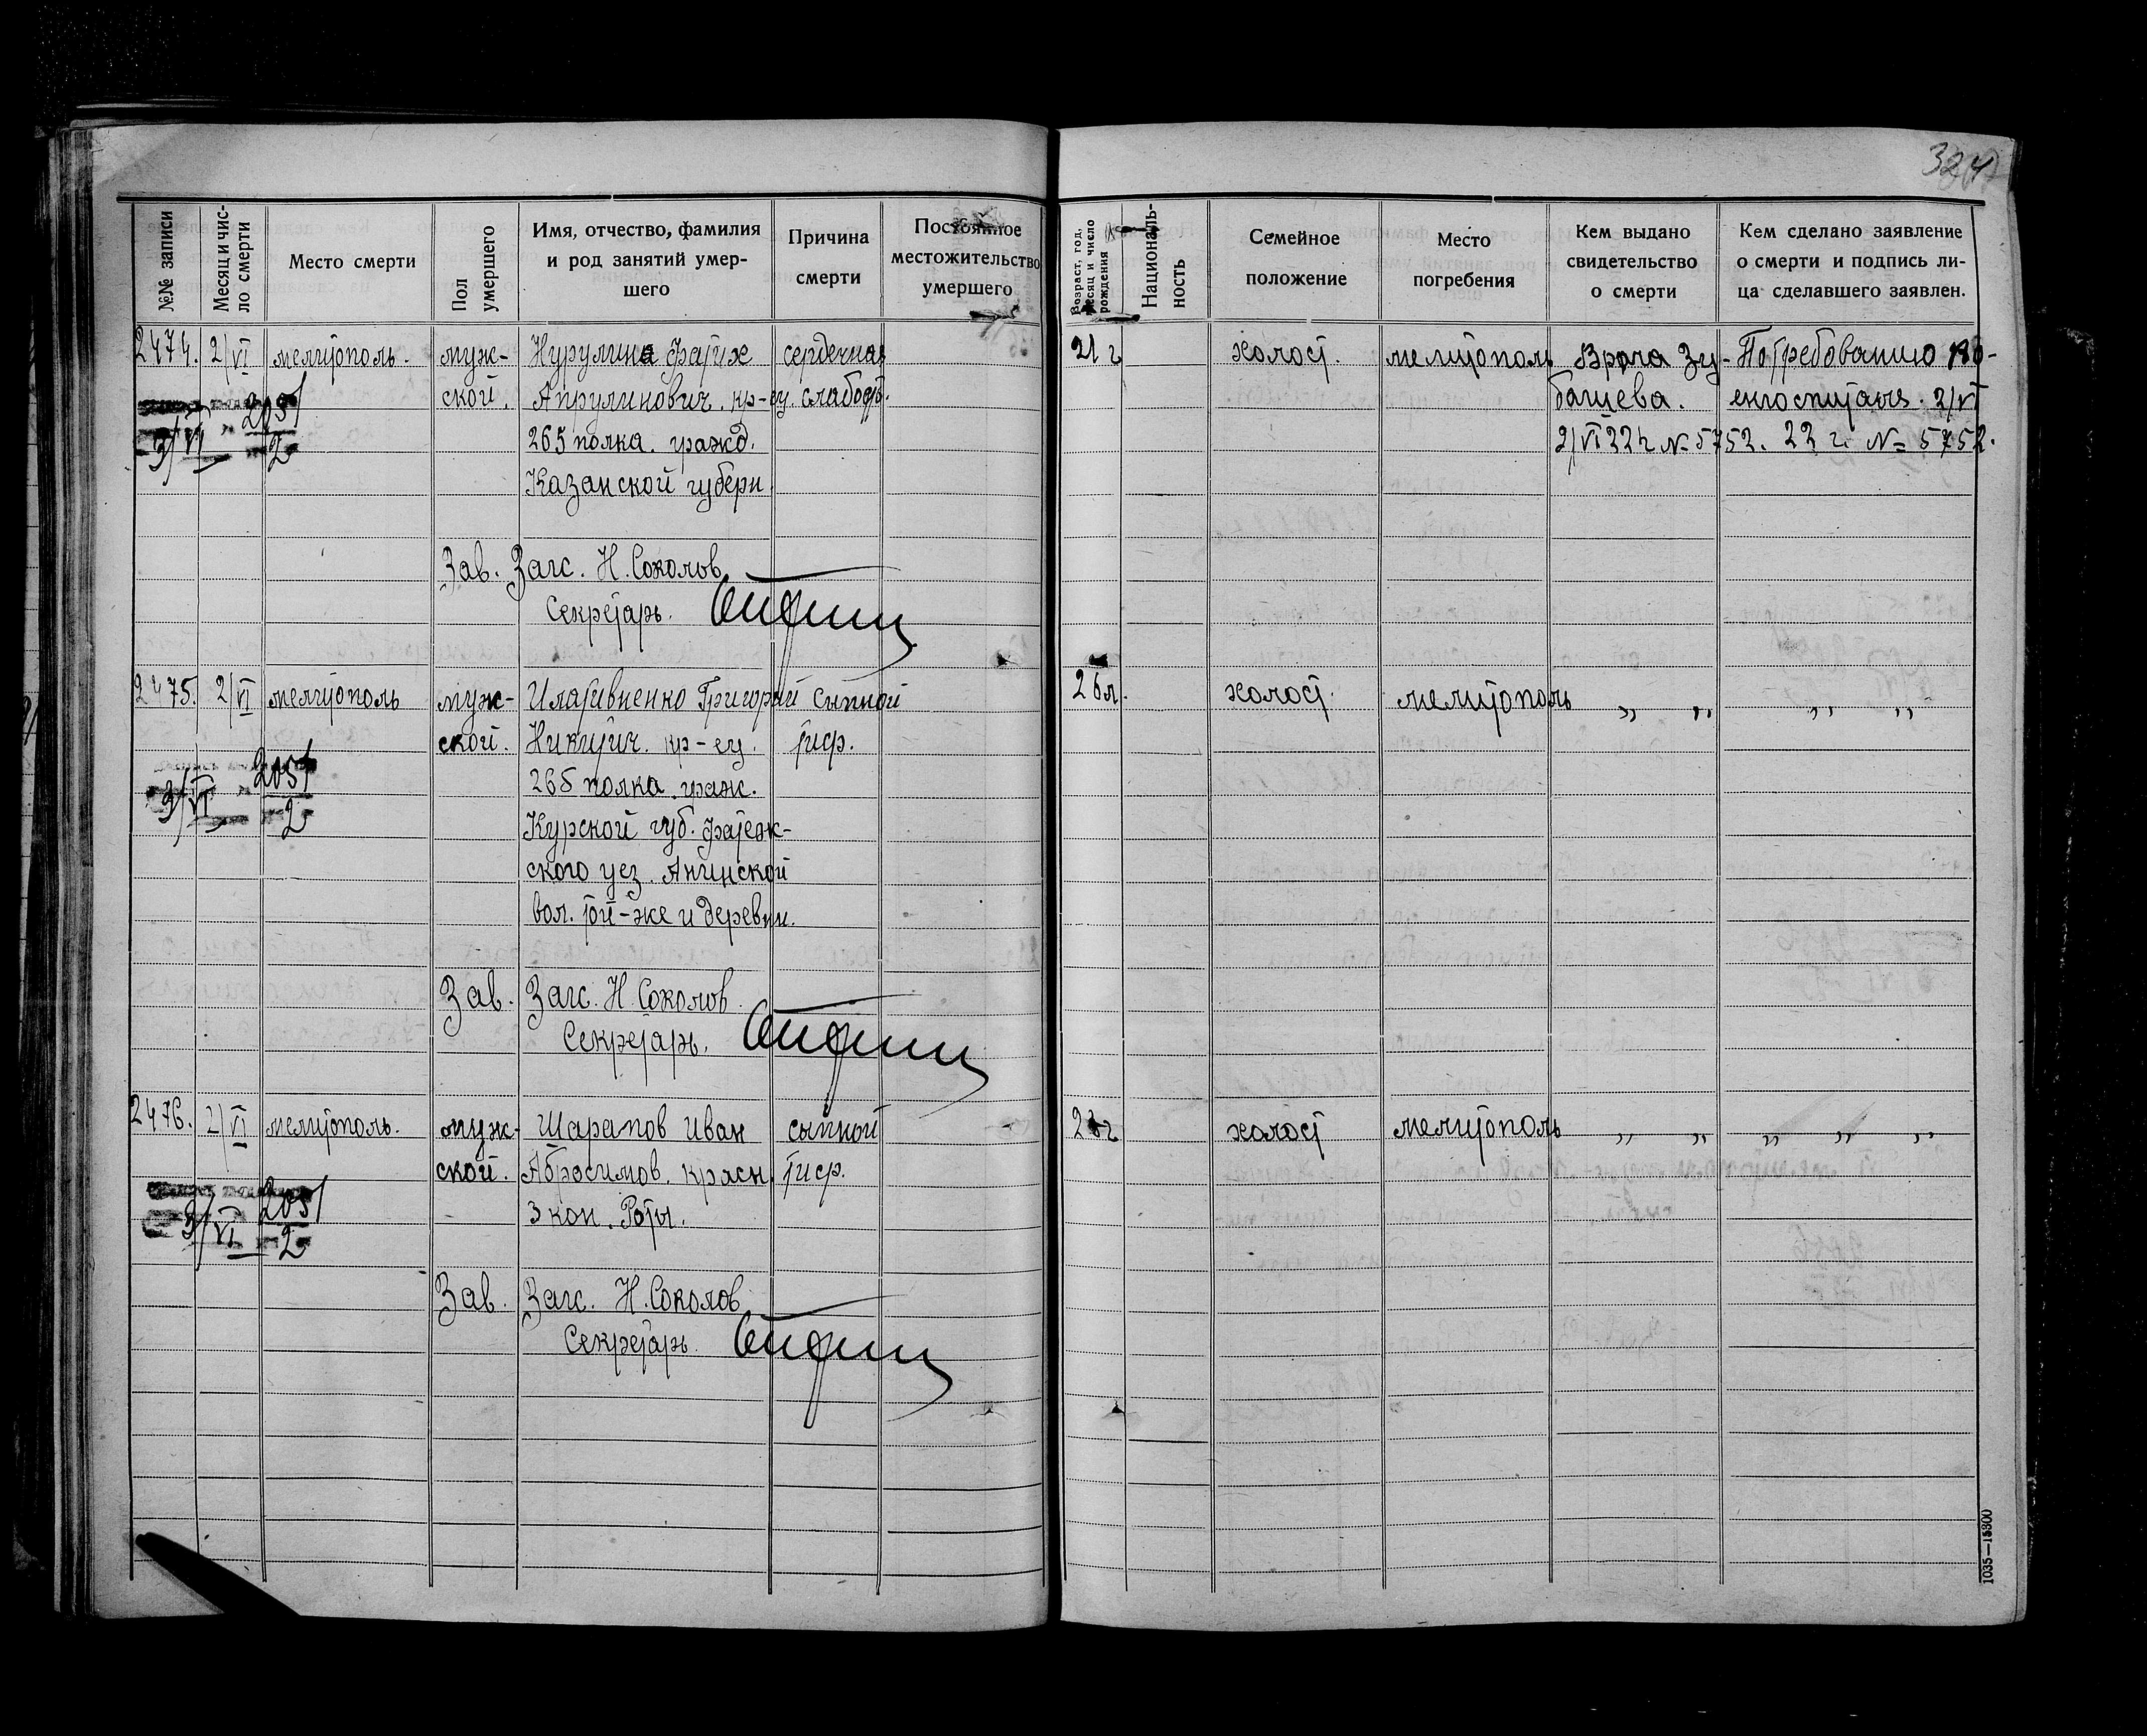 324
№№ записи
Месяц и чис-
ло смерти
Место смерти
Пол
умершего
Имя, отчество, фамилия
и род занятий умер-
шего
Причина
смерти
Постоянное
местожительство
умершего
Возраст, год,
месяц и число
рождения
Националь-
ность
Семейное
положение
Место
погребения
Кем выдано
свидетельство
о смерти
Кем сделано заявление
о смерти и подпись ли-
ца сделавшего заявлен.
2474. 2/VI мелитополь. муж-
ской.
Нурулина Фатих
Апрулинович. кр-ец.
265 полка. гражд.
Казанской губерн.
сердечная
слабость.
21 г
холост.
мелитополь
Врача Зу-
башева.
2/VI 22 г № 5752.
По требованию во-
енгоспиталя. 2/VI
22 г. № 5752.
3/VI 2051
2
Зав. Загс. Н. Соколов
Секретарь.
2475. 2/VI мелитополь муж-
ской.
Григорий
Никитич. кр-ец.
265 полка. граж.
Курской губ. Фатеж-
ского уез. Анинской
вол. той-же и деревни.
сыпной
тиф.
26 л.
холост.
мелитополь
„ „ „ „
3/VI 2051
2
Зав. Загс. Н. Соколов.
Секретарь.
2476. 2/VI мелитополь. муж-
ской.
Шарапов Иван
Абросимов. красн.
3 кон. Роты.
сыпной
тиф.
холост
мелитополь
„ „ „ „ „
3/VI 2051
2
Зав. Загс. Н. Соколов
Секретарь
1035—15300